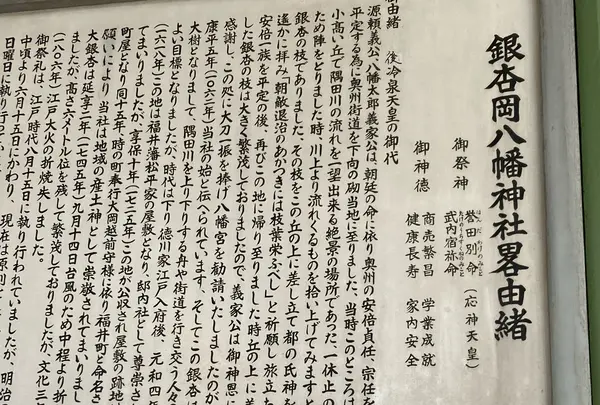 銀杏岡八幡神社畧由緒
御祭神 誉田別命(応神天皇)
武内宿祢命
御神徳 商売繁昌 学業成就
健康長寿 家内安全
由緒 後冷泉天皇の御代
源頼義公、八幡太郎義家公は、朝廷の命に依り奥州の安倍貞任、宗任を
平定する為に奥州街道を下向の砌当地に至りました。当時このところは
小高い丘で隅田川の流れを一望出来る絶景の場所であった。一休止の
ため陣をとりました時、川上より流れくるものを拾い上げてみますと
銀杏の枝でありました。その枝をこの丘の上に差し立て都の氏神を
遥かに拝み「朝敵退治のあかつきには枝葉栄ふべし」と祈願し旅立た
安倍一族を平定の後、再びこの地に帰り至りました時丘の上に差
した銀杏の枝は大きく繁茂しておりましたので、義家公は御神恩に
感謝し、この処に大刀一振を捧げ八幡宮を勧請いたしましたのが
康平五年(一〇六二)当社の始と伝へられています。そしてこの銀杏は
大樹となりまして、隅田川を上り下りする舟や街道を行き交う人々
よい目標となりましたが、時代は下り徳川家江戸入府後、元和四年
(一六一八)この地は福井藩松平家の屋敷となり、邸内社として尊崇さ
てまいりましたが、享保十年(一七二五)この地が公収され屋敷の跡地
町屋となり、同十五年、時の町奉行大岡越前守様に依り福井町と命名さ
願いにより当社は地域の産土神として崇敬されてまいりまし
大銀杏は延享二年(一七四五)九月十四日台風のため中程より折
ましたが、高さ六メートル位を残して繁茂しておりましたが、文化三
(一八〇六)江戸大火の折焼失しました。
御祭礼は、江戸時代八月十五日に執り行われていましたが、明治
中頃より六月十五日にかわり、現在は原則
日曜日に執り行